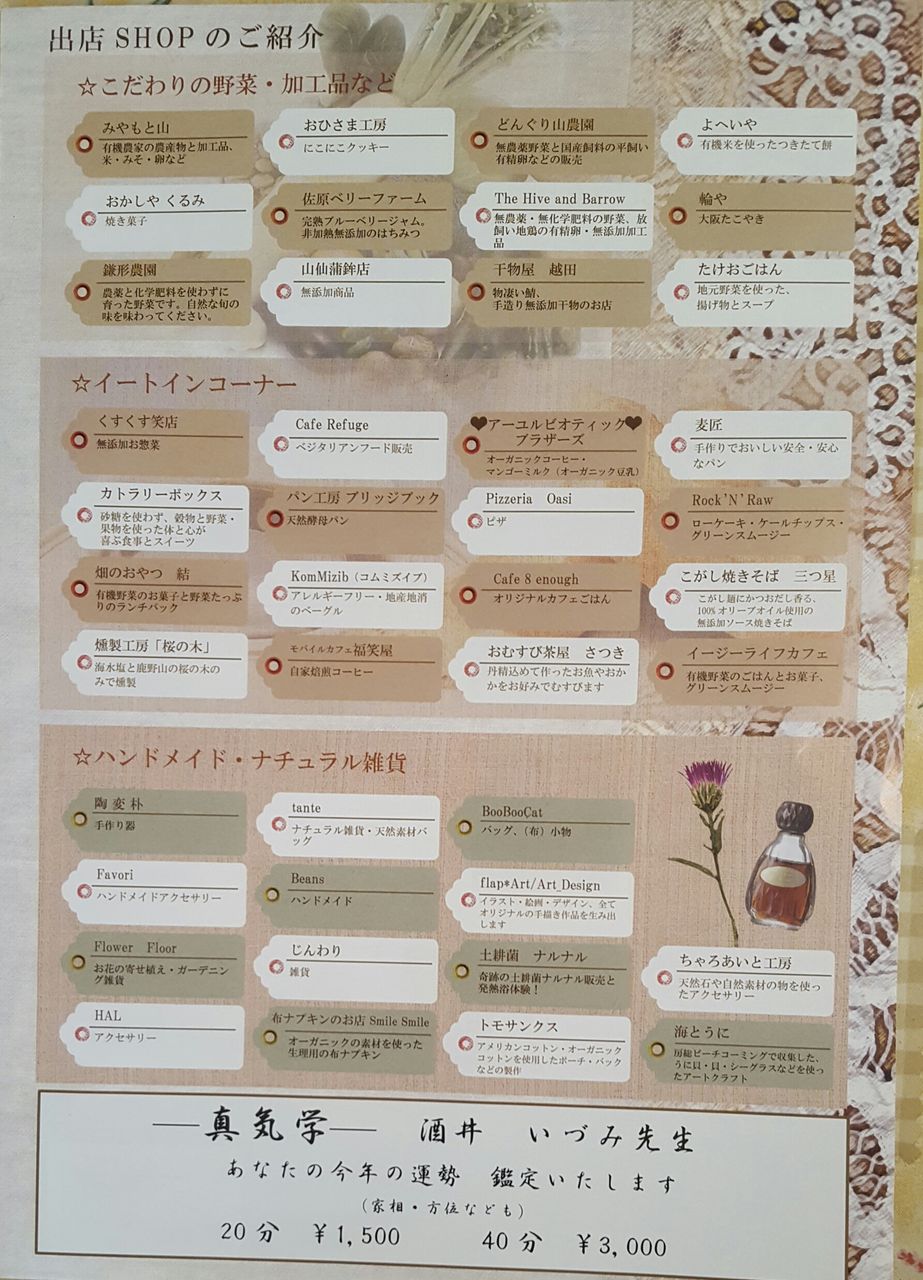 出店 SHOP のご紹介
☆こだわりの野菜・加工品など
みやもと山
有機農家の農産物と加工品、
米・みそ・卵など
おひさま工房
にこにこクッキー
どんぐり山農園
無農薬野菜と国産飼料の平飼い
有精卵などの販売
よへいや
有機米を使ったつきたて餅
おかしや くるみ
焼き菓子
佐原ベリーファーム
完熟ブルーベリージャム。
非加熱無添加のはちみつ
The Hive and Barrow
無農薬・無化学肥料の野菜、放
飼い地鶏の有精卵・無添加加工
品
輪や
大阪たこやき
鎌形農園
農薬と化学肥料を使わずに
育った野菜です。自然な旬の
味を味わってください。
山仙蒲鉾店
無添加商品
干物屋 越田
物凄い鯖、
手造り無添加干物のお店
たけおごはん
地元野菜を使った、
揚げ物とスープ
☆イートインコーナー
くすくす笑店
無添加お惣菜
Cafe Refuge
ベジタリアンフード販売
❤アーユルビオティック❤
ブラザーズ
オーガニックコーヒー・
マンゴーミルク（オーガニック豆乳）
麦匠
手作りでおいしい安全・安心
なパン
カトラリーボックス
砂糖を使わず、穀物と野菜・
果物を使った体と心が
喜ぶ食事とスイーツ
パン工房 ブリッジブック
天然酵母パン
Pizzeria Oasi
ピザ
Rock'N'Raw
ローケーキ・ケールチップス・
グリーンスムージー
畑のおやつ 結
有機野菜のお菓子と野菜たっぷ
りのランチパック
KomMizib（コムミズイブ）
アレルギーフリー・地産地消
のベーグル
Cafe 8 enough
オリジナルカフェごはん
こがし焼きそば 三つ星
こがし麺にかつおだし香る、
100%オリーブオイル使用の
無添加ソース焼きそば
燻製工房「桜の木」
海水塩と鹿野山の桜の木の
みで燻製
モバイルカフェ福笑屋
自家焙煎コーヒー
おむすび茶屋 さつき
丹精込めて作ったお魚やおか
かをお好みでむすびます
イージーライフカフェ
有機野菜のごはんとお菓子、
グリーンスムージー
☆ハンドメイド・ナチュラル雑貨
陶 変 朴
手作り器
tante
ナチュラル雑貨・天然素材バ
ッグ
BooBooCat
バッグ、（布）小物
Favori
ハンドメイドアクセサリー
Beans
ハンドメイド
flap*Art/Art Design
イラスト・絵画・デザイン、全て
オリジナルの手描き作品を生み出
します
Flower Floor
お花の寄せ植え・ガーデニン
グ雑貨
じんわり
雑貨
土耕菌 ナルナル
奇跡の土耕菌ナルナル販売と
発熱浴体験！
ちゃろあいと工房
天然石や自然素材の物を使っ
たアクセサリー
HAL
アクセサリー
布ナプキンのお店 Smile Smile
オーガニックの素材を使った
生理用の布ナプキン
トモサンクス
アメリカンコットン・オーガニック
コットンを使用したポーチ・バック
などの製作
海とうに
房総ビーチコーミングで収集した、
うに貝・貝・シーグラスなどを使っ
たアートクラフト
―真気学― 酒井 いづみ先生
あなたの今年の運勢 鑑定いたします
（家相・方位なども）
20分 ¥1,500 40分 ¥3,000